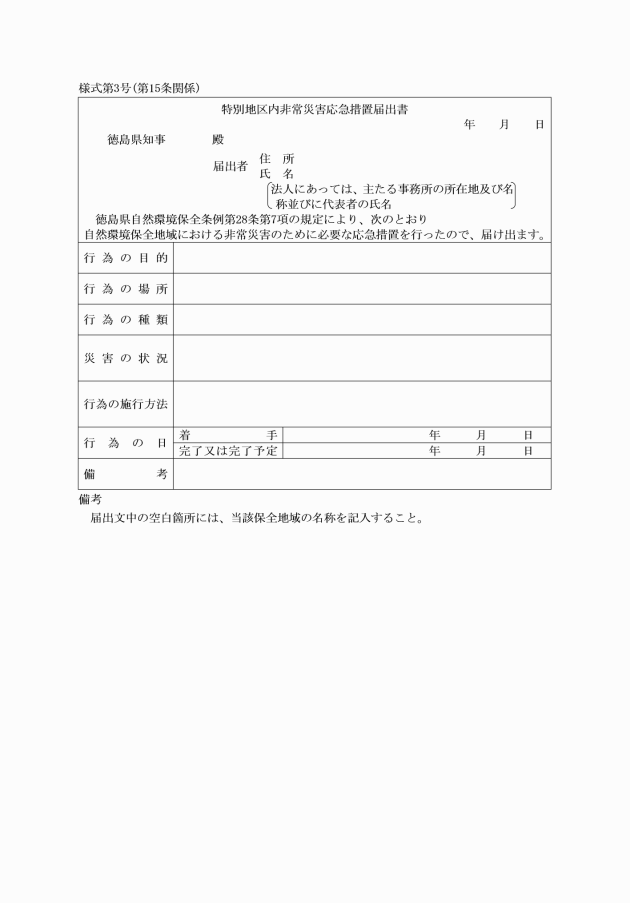 様式第3号(第15条関係)
特別地区内非常災害応急措置届出書
年　月　日
徳島県知事　　殿
届出者　住　所
氏　名
法人にあっては、主たる事務所の所在地及び名
称並びに代表者の氏名
徳島県自然環境保全条例第28条第7項の規定により、次のとおり
自然環境保全地域における非常災害のために必要な応急措置を行ったので、届け出ます。
行為の目的
行為の場所
行為の種類
災害の状況
行為の施行方法
行為の日
着手　年　月　日
完了又は完了予定　年　月　日
備考
備考
届出文中の空白箇所には、当該保全地域の名称を記入すること。